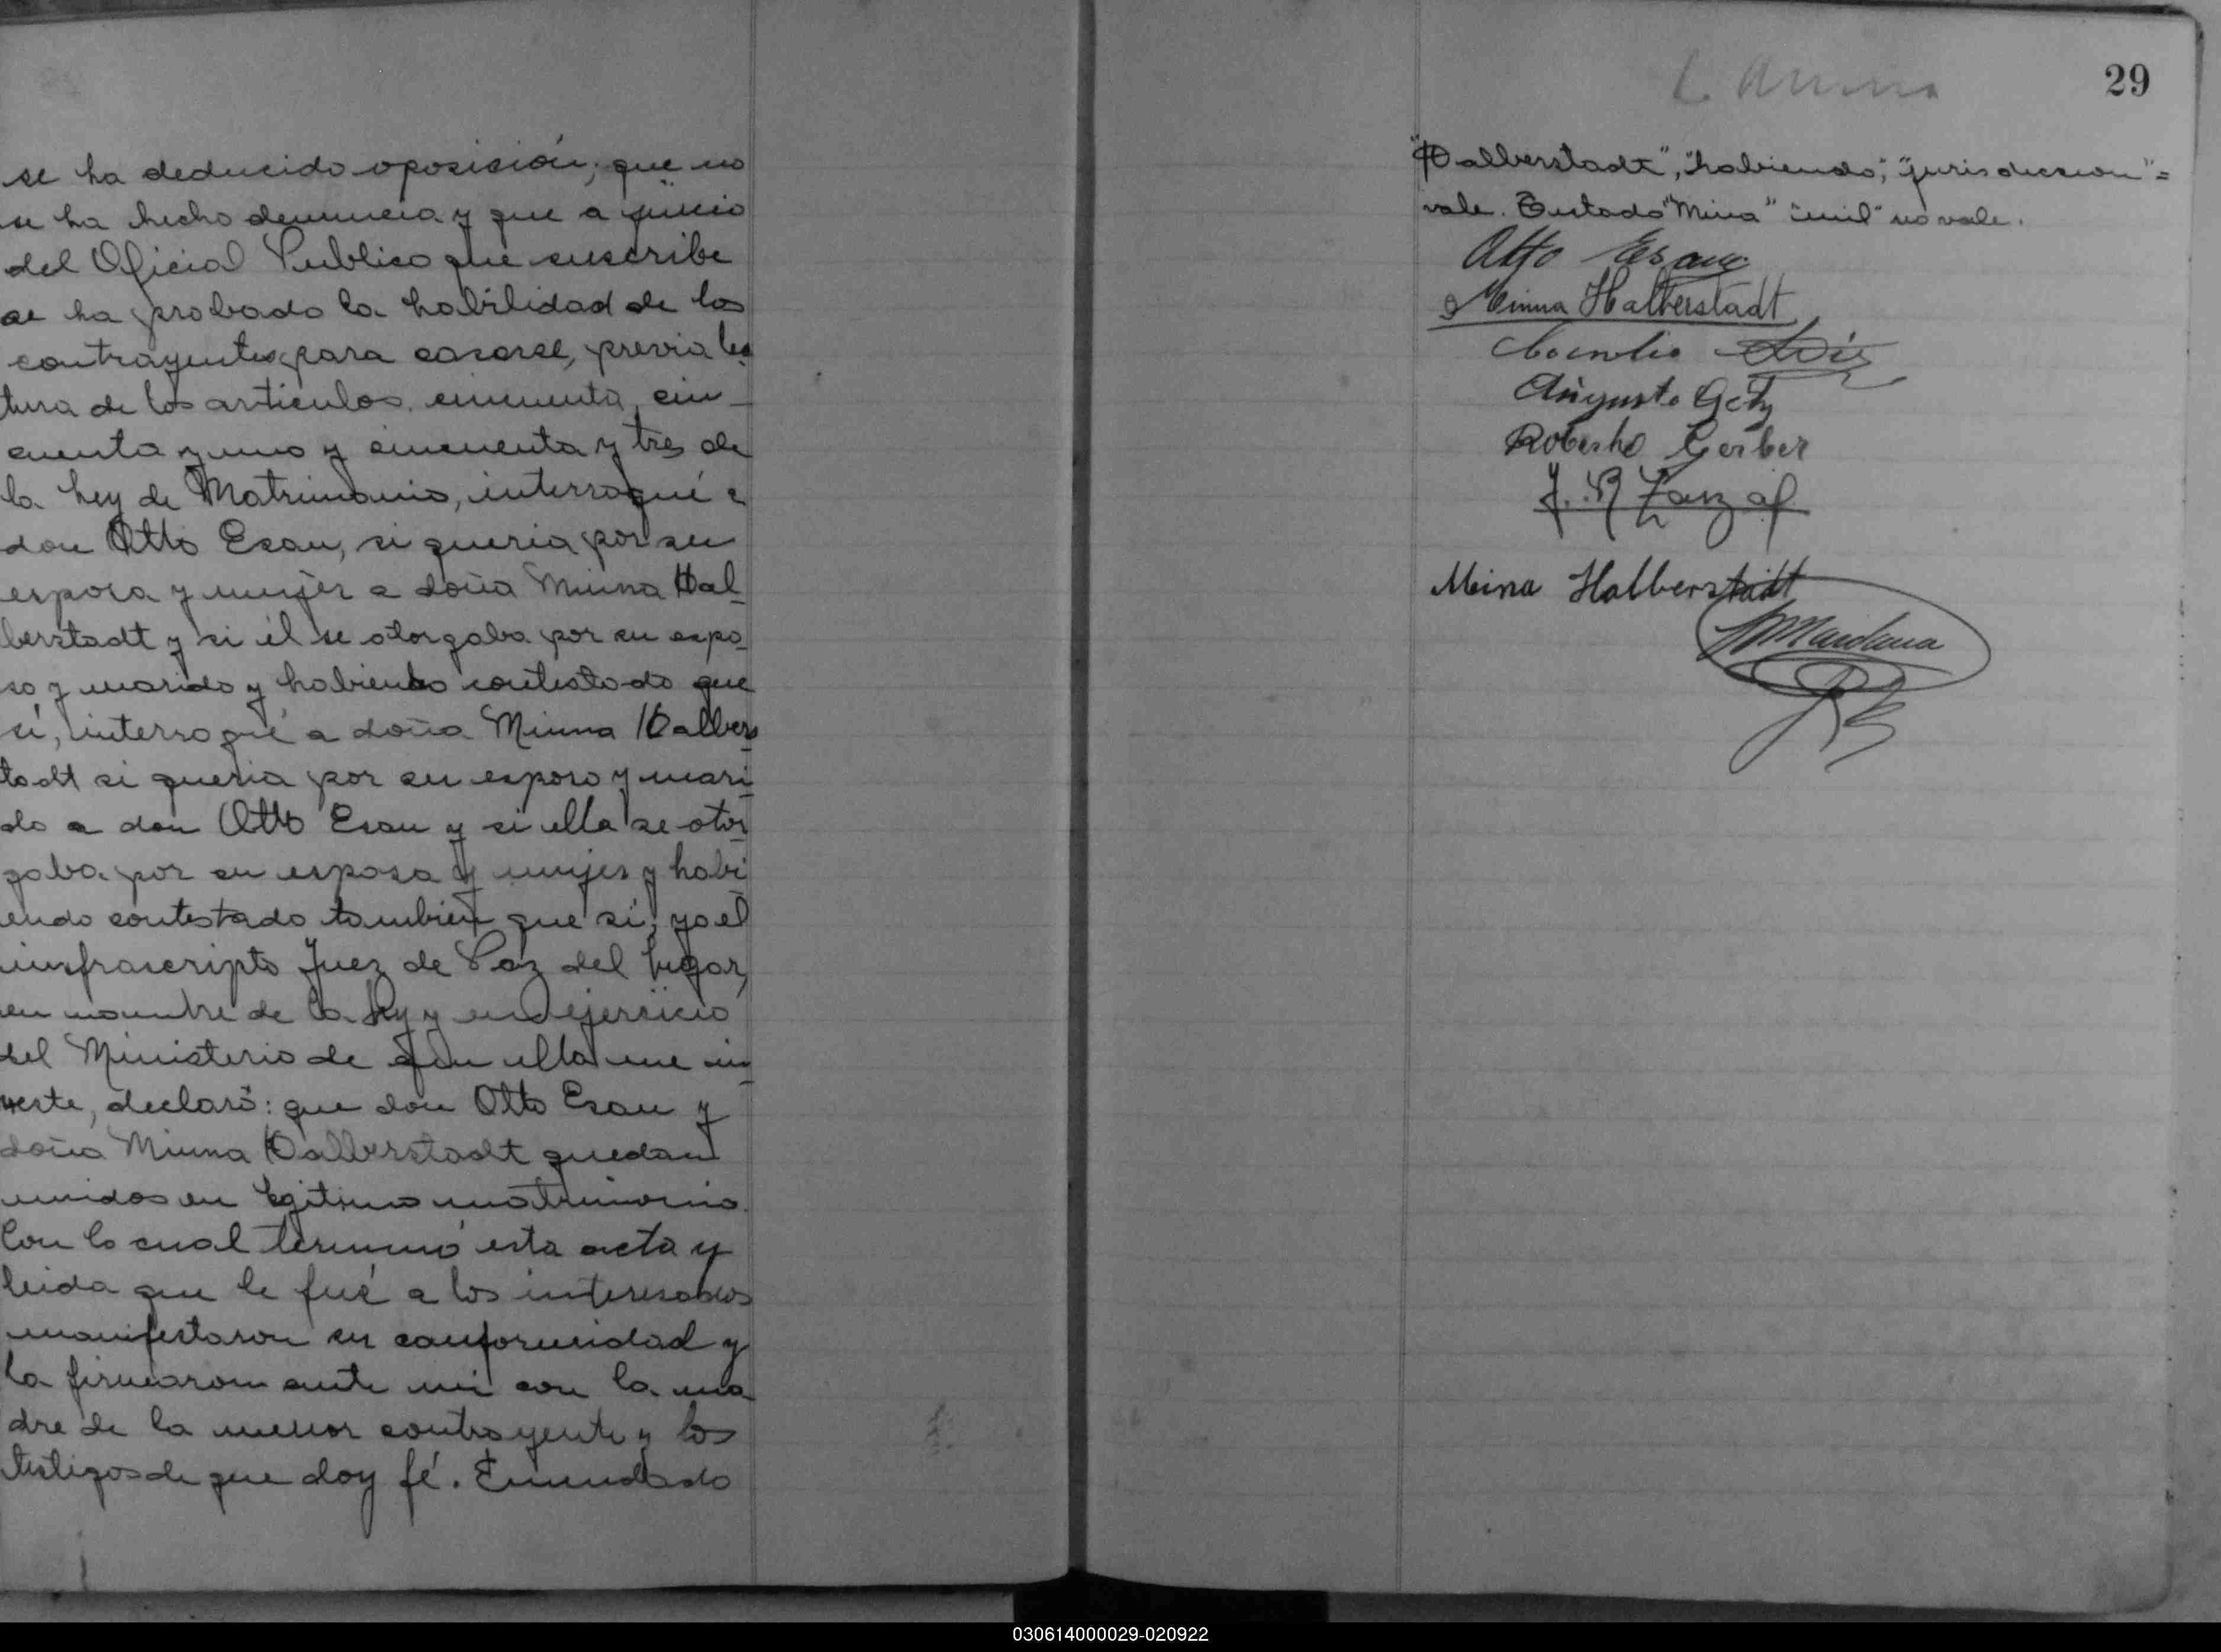 se ha deducido oposición; que no
se ha hecho denuncia y que a juicio
del Oficial Publico que suscribe
se ha probado la habilidad de los
contrayentes para casarse, previa lec
tura de los articulos cincuenta, cin-
cuenta y uno y cincuenta y tres de
la Ley de Matrimonio, interrogué a
don Otto Esau, si queria por su
esposa y mujer a doña Minna Hal-
berstadt y si él se otorgaba por su espo-
so y marido y habiendo contestado que
sí, interrogué a doña Minna Halbers
tadt si queria por su esposo y mari-
do a don Otto Esau y si ella se otor
gaba por su esposa y mujer y habi
endo contestado tambien que sí, yo el
infrascripto Juez de Paz del lugar,
en nombre de la Ley y en ejercicio
del Ministerio de que ella me in-
veste, declaró: que don Otto Esau y
doña Minna Halberstadt quedan
unidos en legitimo matrimonio.
Con lo cual terminó esta acta y
leida que le fué a los interesados
manifestaron su conformidad y
la firmaron ante mi con la ma
dre de la menor contrayente y los
testigos de que doy fé. Enmendado
29
"Halberstadt", "habiendo", "jurisdiccion"=
vale. Testado "Mina" "mil" no vale.
Otto Esau
Minna Halberstadt
Augusto Getz
Roberto Gerber
Mina Halberstadt
030614000029-020922